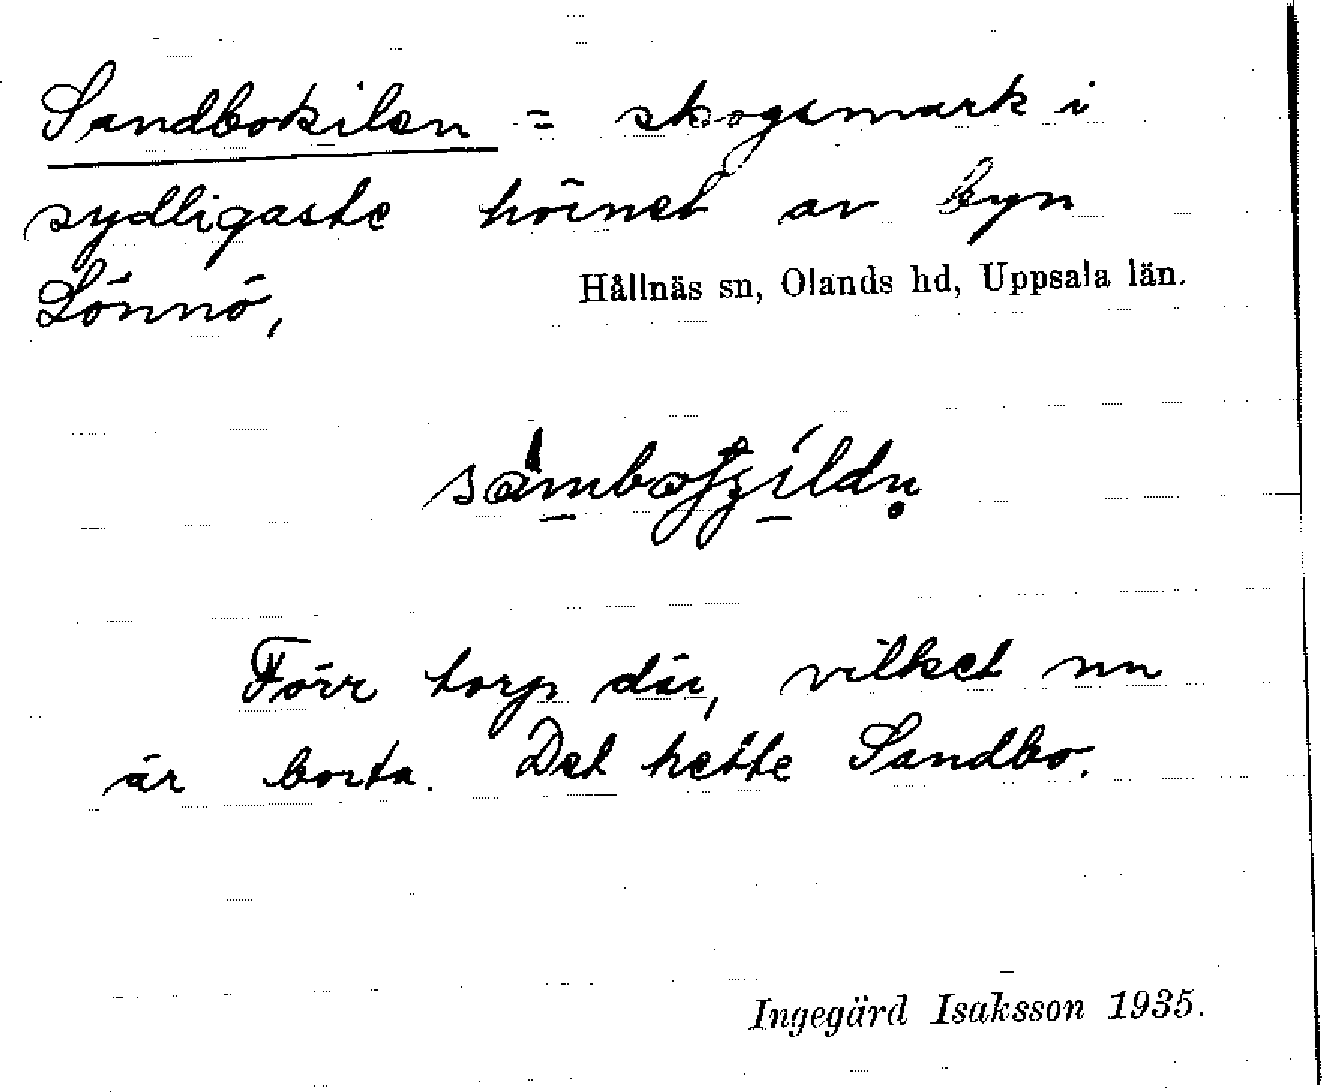 Sandbokilen = skogsmark i
sydligaste hörnet av byn
Lönnö,
Hållnäs sn, Olands hd, Uppsala län.
Förr torp där, vilket nu
är borta. Det hette Sandbo.
Ingegärd Isaksson 1935.